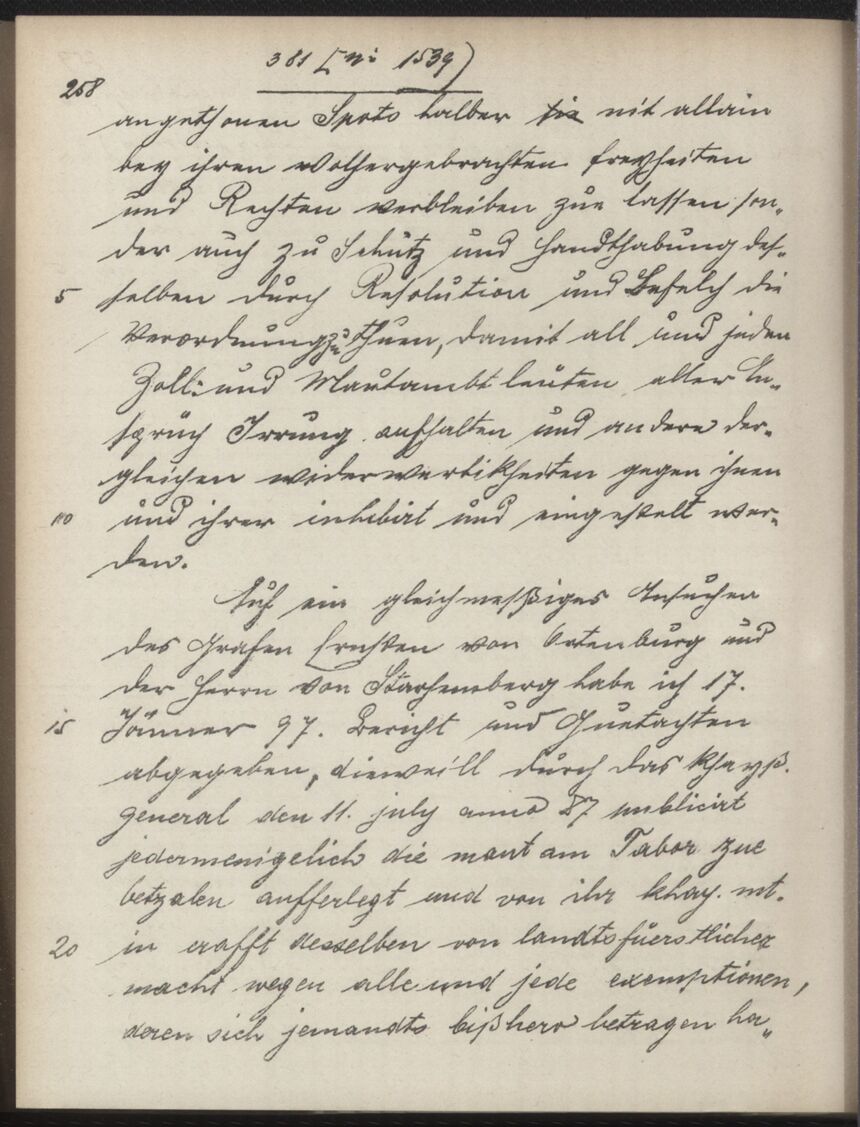 381 [Nr 1539)
258
angethonen Spots halber sie nit allain
bey ihren wolhergebrachten freyheiten
und Rechten verbleiben zue lassen son„
der auch zu Schutz und handthabung des„
5 selben durch Resolution und Befelch die
Verordnung zu thuen, damit all und jeden
Zoll: und Mautambtleuten aller An„
sprüch Irrung aufhalten und andere der„
gleichen widerwertikheiten gegen ihnen
10 und ihrer inhibirt und eingestelt wer„
den.
Auf ein gleichmeßiges Ansuchen
des Grafen Ernsten von Ortenburg und
der Herrn von Starhemberg habe ich 17.
15 Jänner 97. Bericht und Guetachten
abgegeben, dieweill durch das Khayß.
general den 11. july anno 87 publicirt
jedermenigelich die maut am Tabor zue
betzalen aufferlegt und von ihr khay. mt.
20 in crafft desselben von landtsfüerstlicher
macht wegen alle und jede exemptionen,
deren sich jemandts bißhero betragen ha„